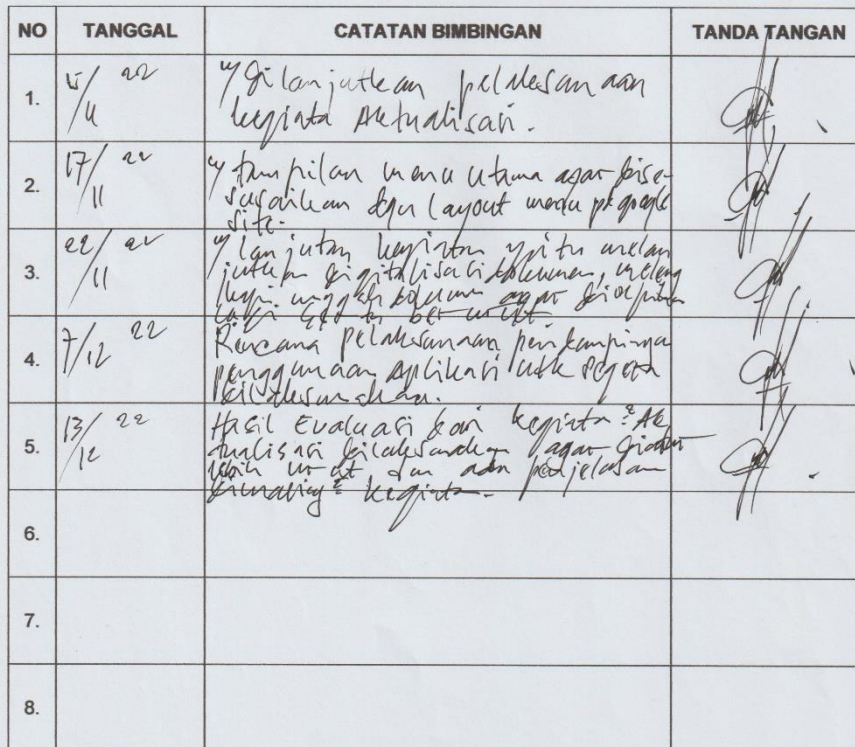 NO TANGGAL CATATAN BIMBINGAN TANDA TANGAN
1. 15/11 22 Dilanjutkan pelaksanaan
kegiata Aktualisasi.
2. 17/11 22 tampilan menu utama agar dise-
suaikan dgn layout menu pd google
site.
3. 22/11 22 lanjutan kegiatan yaitu melan
jutkan digitalisasi dokumen, meleng
kapi unggah dokumen agar
4. 7/12 22 Rencana pelaksanaan pendampinga
penggunaan Aplikasi utk segera
dilaksanakan.
5. 13/12 22 Hasil Evaluasi dari kegiata2 Ak
tualisasi dilaksanakan agar
lebih urut dan ada penjelasan
kegiata.
6.
7.
8.